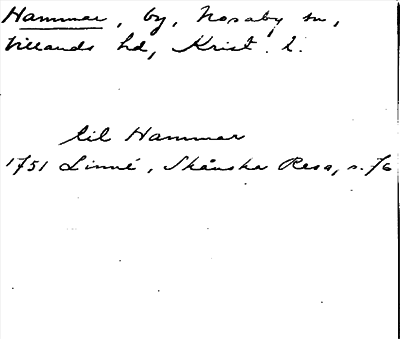 Hammar, by, Nosaby sn,
Villands hd, Krist. l.
til Hammar
1751 Linné, Skånska Resa, s. 76